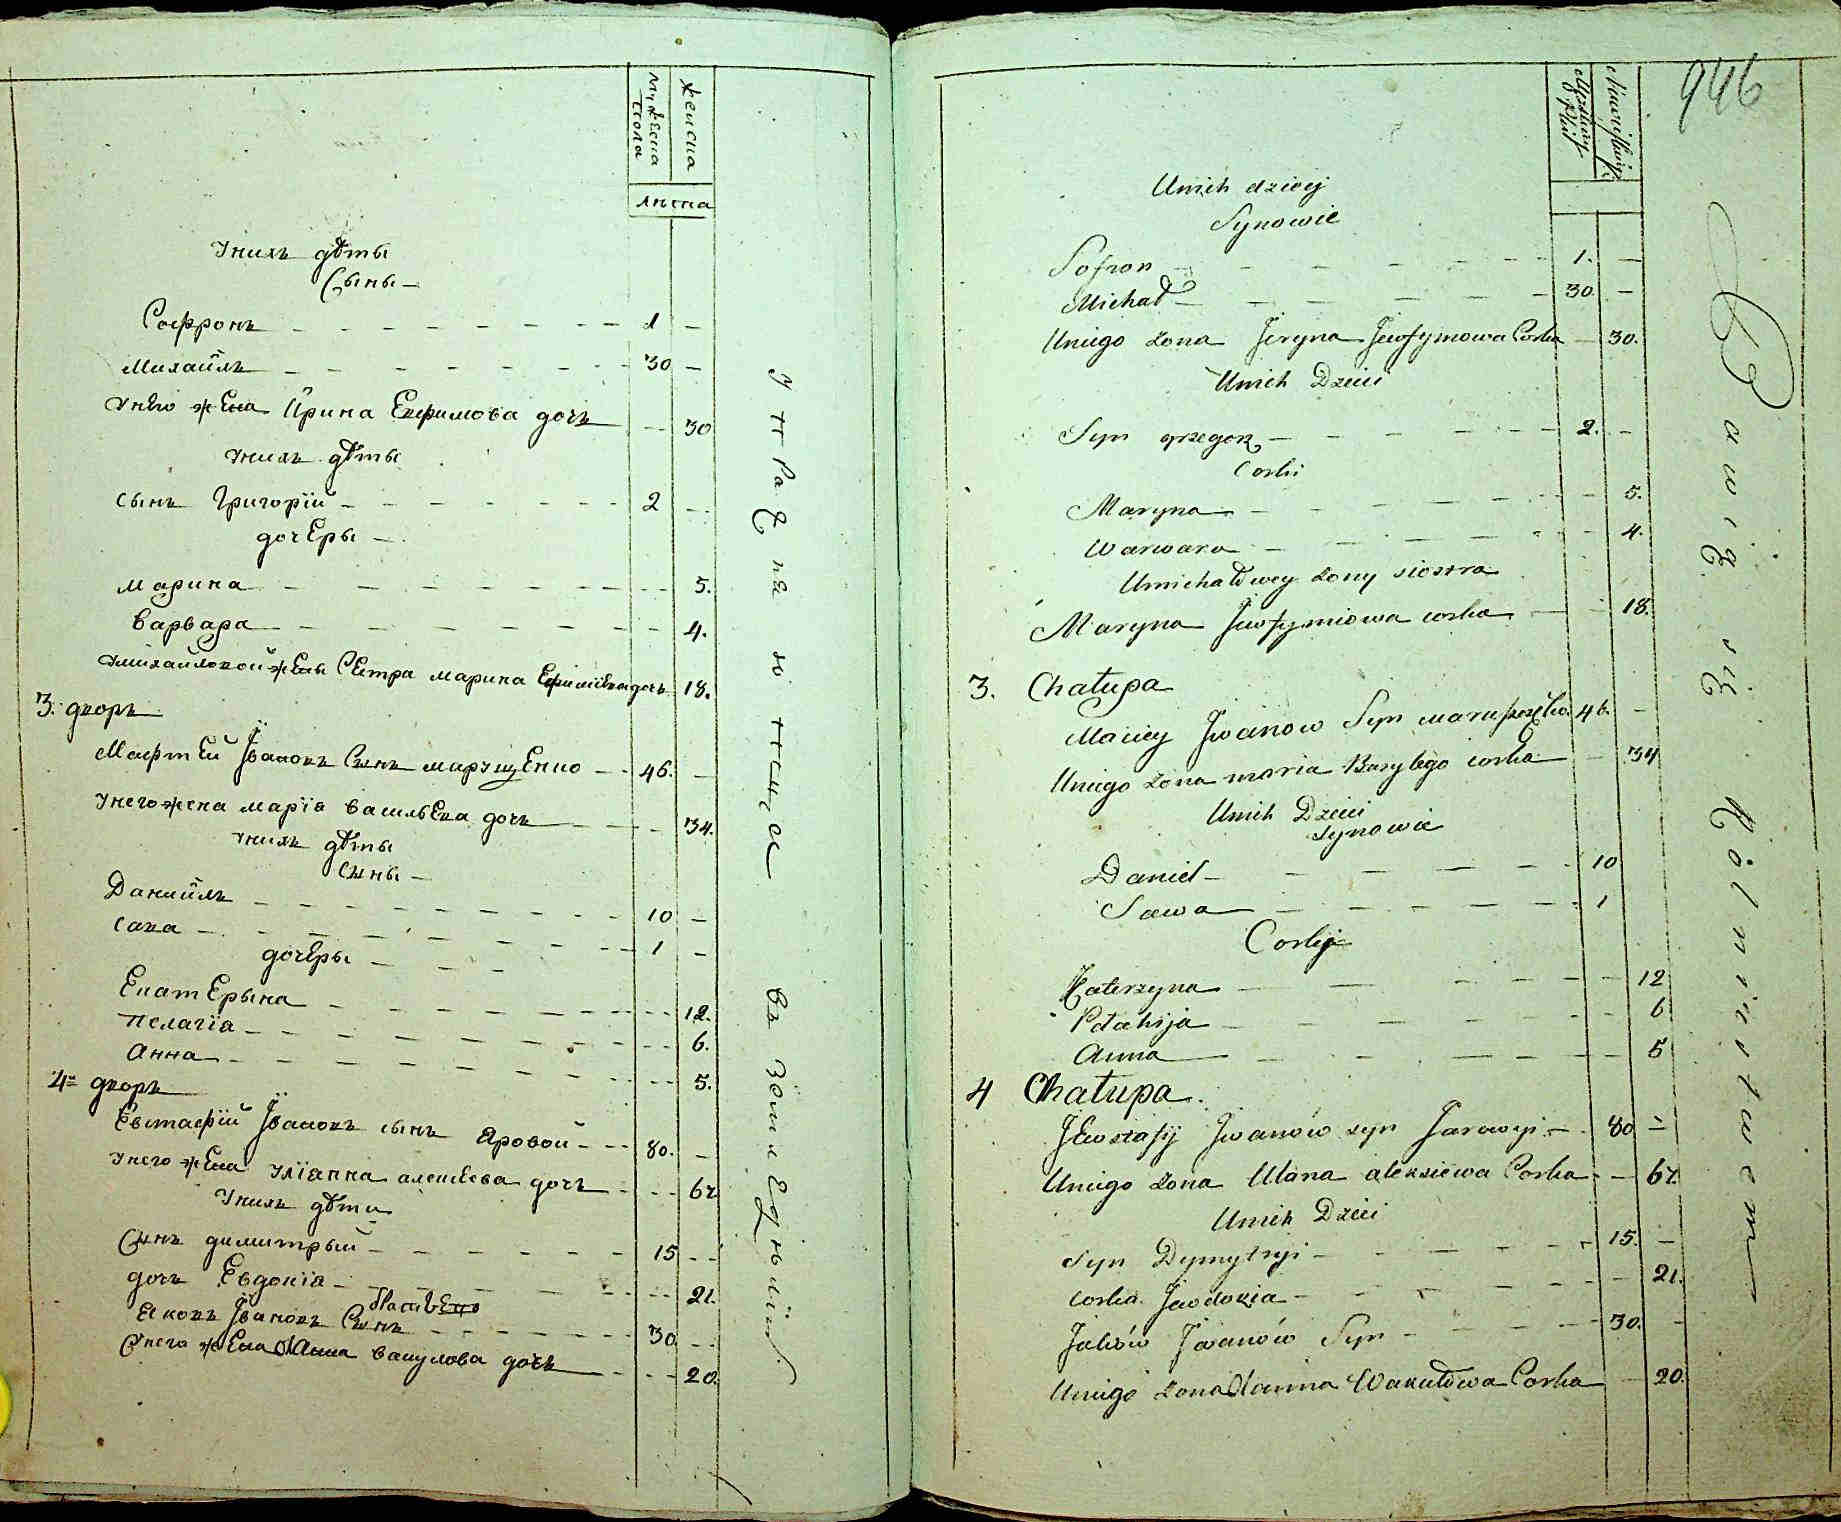 Мужеска пола
Женска
лѣта
У нихъ дѣты
Сыны
Софронъ 1
Михаилъ 30
У него жена Ирина Евфимова дочь 30
У нихъ дѣты
Сынъ Григорій 2
дочеры
Марина 5.
Варвара 4.
У михайловой жены Сестра марина 18.
3. дворъ
Мафтей Івановъ Сынъ марущенко 46.
У него жена марія васильева дочь 34.
У нихъ дѣты
Сыны
Даниилъ 10
Сава 1
дочеры
Екатерына 12.
Пелагія 6.
Анна 5.
4й дворъ
Евстафій Івановъ сынъ Яровой 80.
У него жена Уліанна алексіева дочь 67
У нихъ дѣти
Сынъ димитрый 15
дочь Евдокіа 21.
Яковъ Івановъ Сынъ 30
У него жена Анна вакулова дочь 20.
упражняютса въ земледѣліи
946
Unich dzieej
Synowie
Sofron 1.
Michał 30.
Uniego żona Jeryna Jewfymowa Corka 30.
Unich Dzieci
Syn grzegorz 2.
Corki
Maryna 5.
Warwara 4.
Umichałowey żony siostra
Maryna Jewfymiowa corka 18.
3. Chałupa
Maciey Jwanow Syn 46.
Uniego żona maria Bazylego corka 34
Unich Dzieci
Synowie
Daniel 10
Sawa 1
Corki
Katerzyna 12
Pelahija 6
Anna 5
4 Chałupa.
Jewstafij Jwanów syn Jarowyi 80
Uniego żona Ulana alexiewa Corka 67.
Unich Dzieci
Syn Dymytryi 15.
corka Jewdokia 21.
Jaków Jwanów Syn 30.
Uniego żona Hanna Wakułowa Corka 20.
Bawią się Rolnictwem